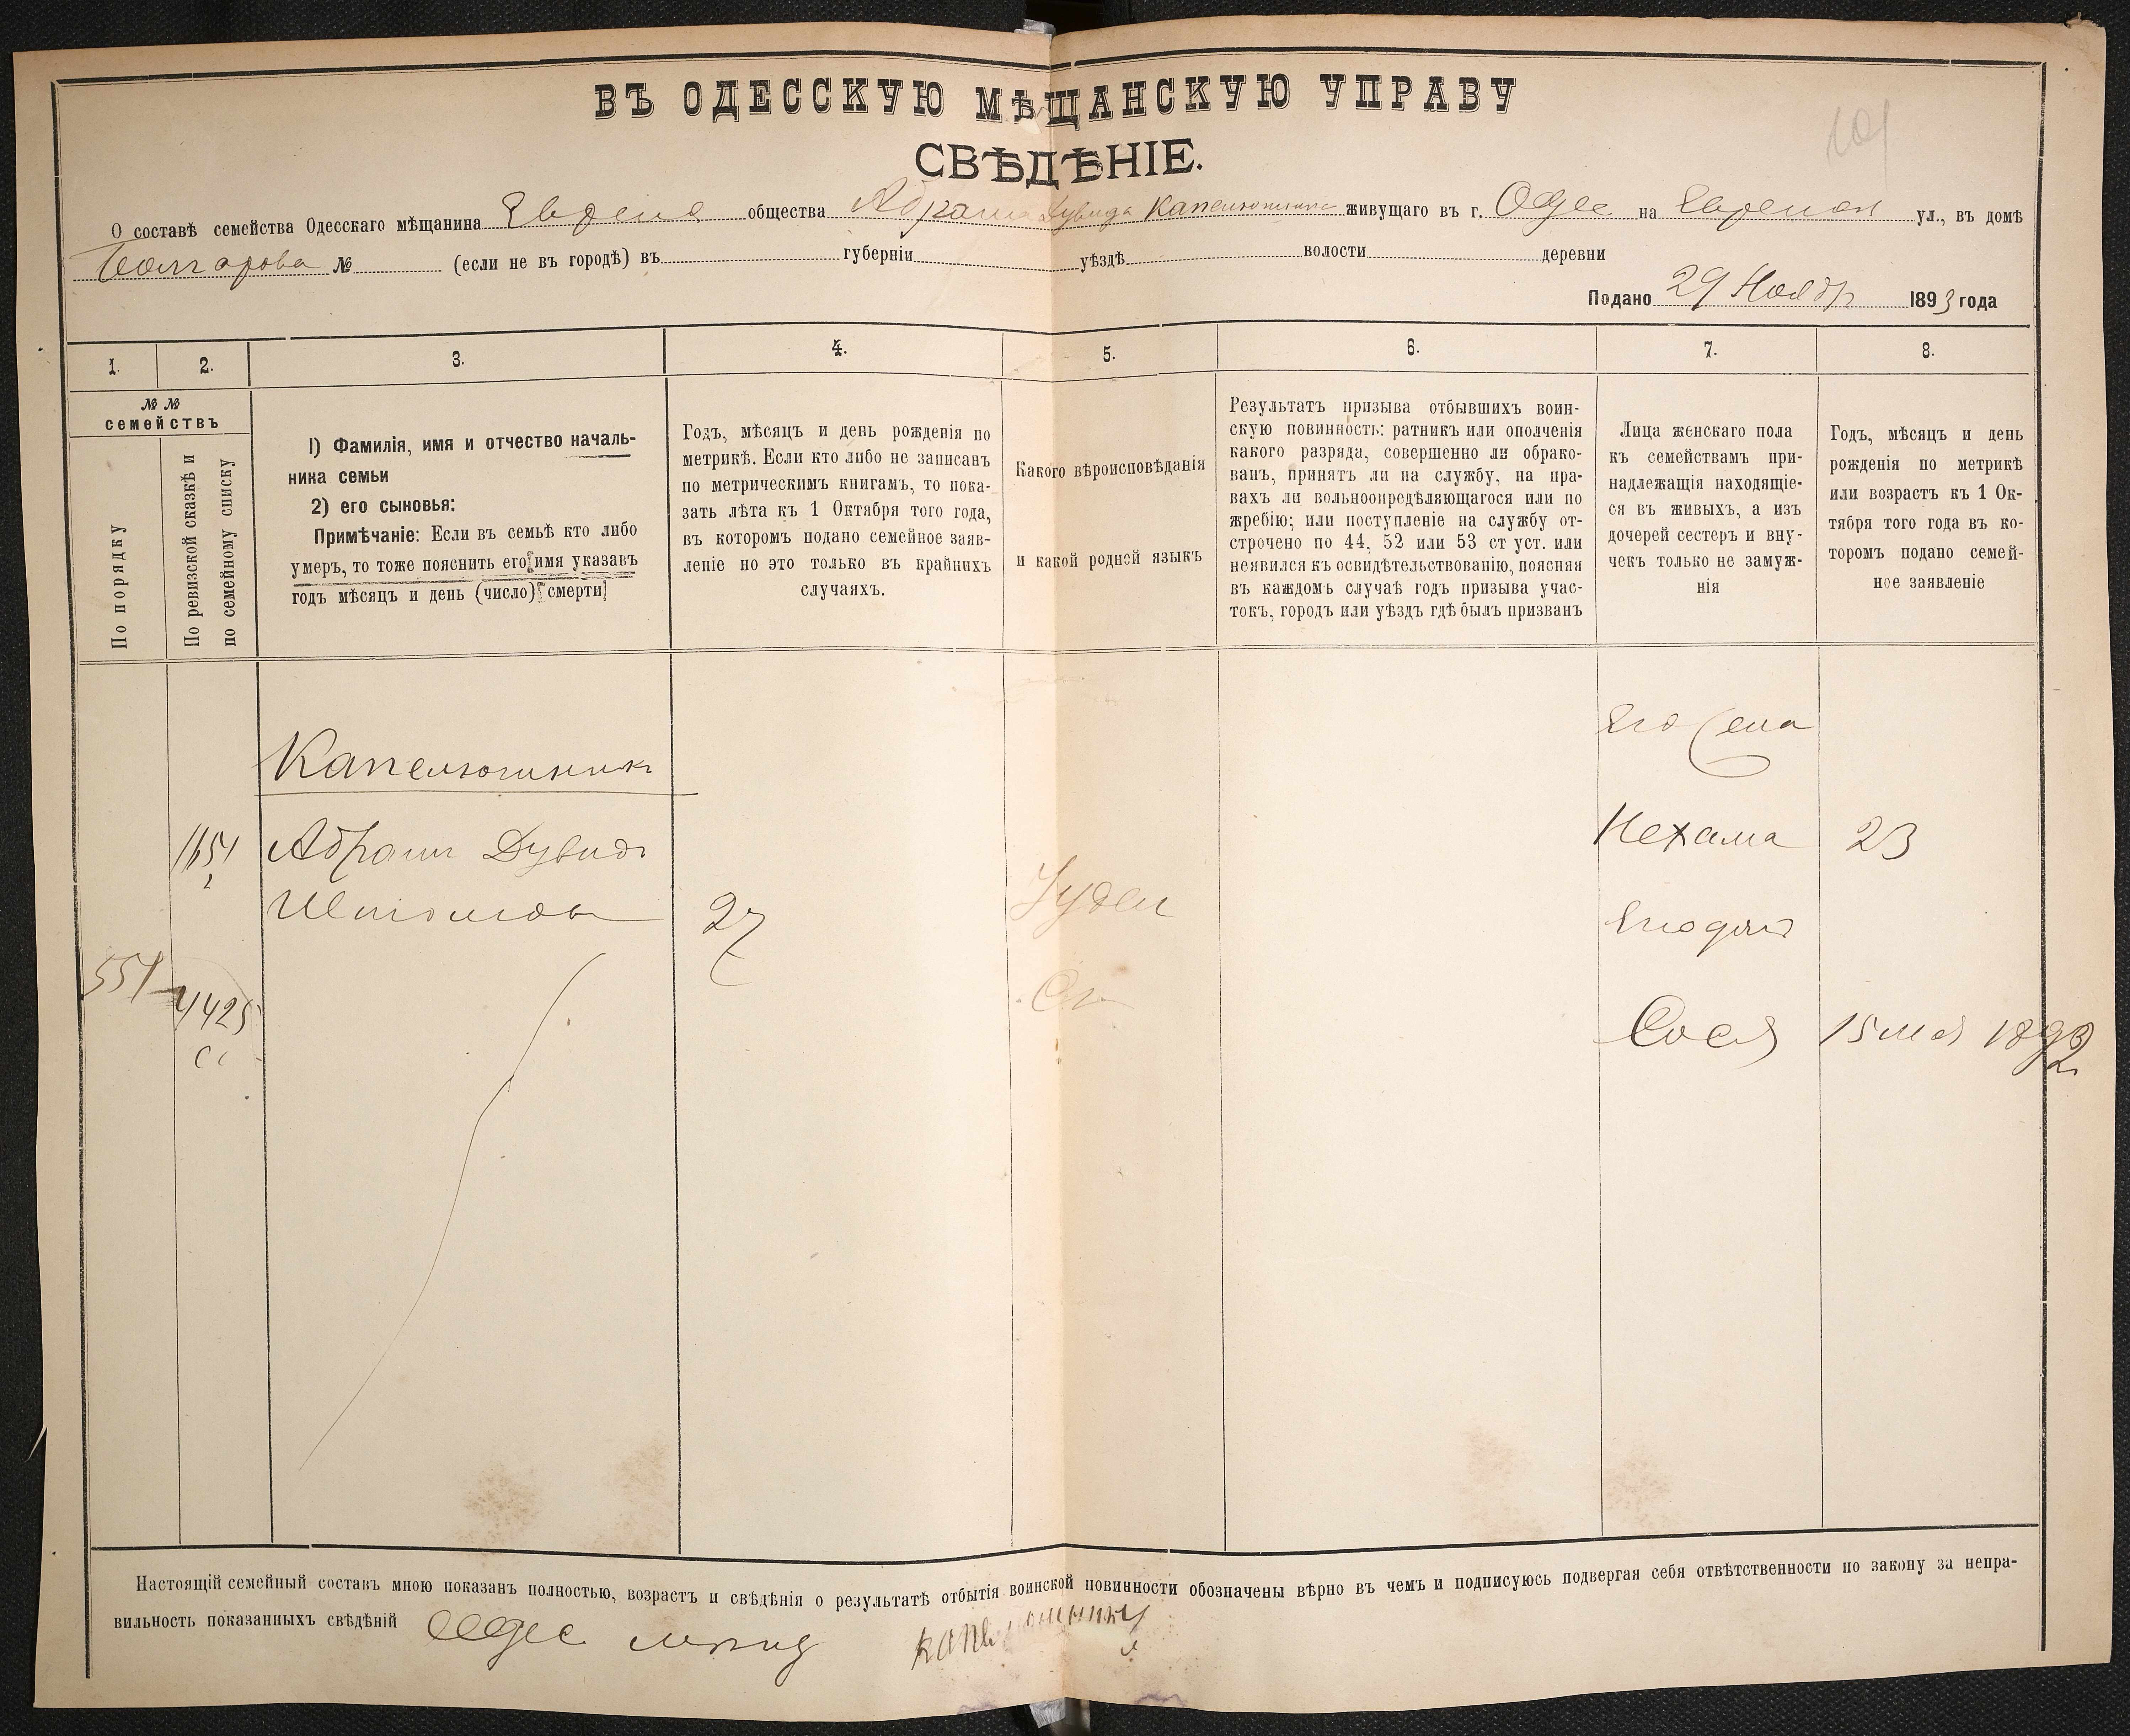 101
ВЪ ОДЕССКУЮ МѢЩАНСКУЮ УПРАВУ
СВѢДѢНІЕ.
О составѣ семейства Одесскаго мѣщанина Еврейс общества Абрама Дувида Капелюшника живущаго въ г. Одес на Еврейской ул., въ домѣ
Болгарова № (если не въ городѣ) въ губерніи уѣздѣ волости деревни
Подано 29 Ноябр 1893 года
1. 2. 3. 4. 5. 6. 7. 8.
№ №
семействъ
По порядку
По ревизской сказкѣ и
по семейному списку
1) Фамилія, имя и отчество началь-
ника семьи
2) его сыновья:
Примѣчаніе: Если въ семьѣ кто либо
умеръ, то тоже пояснить его имя указавъ
годъ мѣсяцъ и день (число) смерти
Годъ, мѣсяцъ и день рожденія по
метрикѣ. Если кто либо не записанъ
по метрическимъ книгамъ, то пока-
зать лѣта къ 1 Октября того года,
въ которомъ подано семейное заяв-
леніе но это только въ крайнихъ
случаяхъ.
Какого вѣроисповѣданія
и какой родной языкъ
Результатъ призыва отбывшихъ воин-
скую повинность: ратникъ или ополченія
какого разряда, совершенно ли обрако-
ванъ, принятъ ли на службу, на пра-
вахъ ли вольноопредѣляющагося или по
жребію; или поступленіе на службу от-
строчено по 44, 52 или 53 ст уст. или
неявился къ освидѣтельствованію, поясняя
въ каждомъ случаѣ годъ призыва учас-
токъ, городъ или уѣздъ гдѣ былъ призванъ
Лица женскаго пола
къ семействамъ при-
надлежащія находящіе-
ся въ живыхъ, а изъ
дочерей сестеръ и вну-
чекъ только не замуж-
нія
Годъ, мѣсяцъ и день
рожденія по метрикѣ
или возрастъ къ 1 Ок-
тября того года въ ко-
торомъ подано семей-
ное заявленіе
Его жена
Капелюшникъ
1651 Абрамъ Дувидъ Нехама 23
2
27 Іудей
551 4425
Сося 15 мая 1892
Настоящій семейный составъ мною показанъ полностью, возрастъ и свѣдѣнія о результатѣ отбытія воинской повинности обозначены вѣрно въ чемъ и подписуюсь подвергая себя отвѣтственности по закону за непра-
вильность показанныхъ свѣдѣній Одес мѣщ